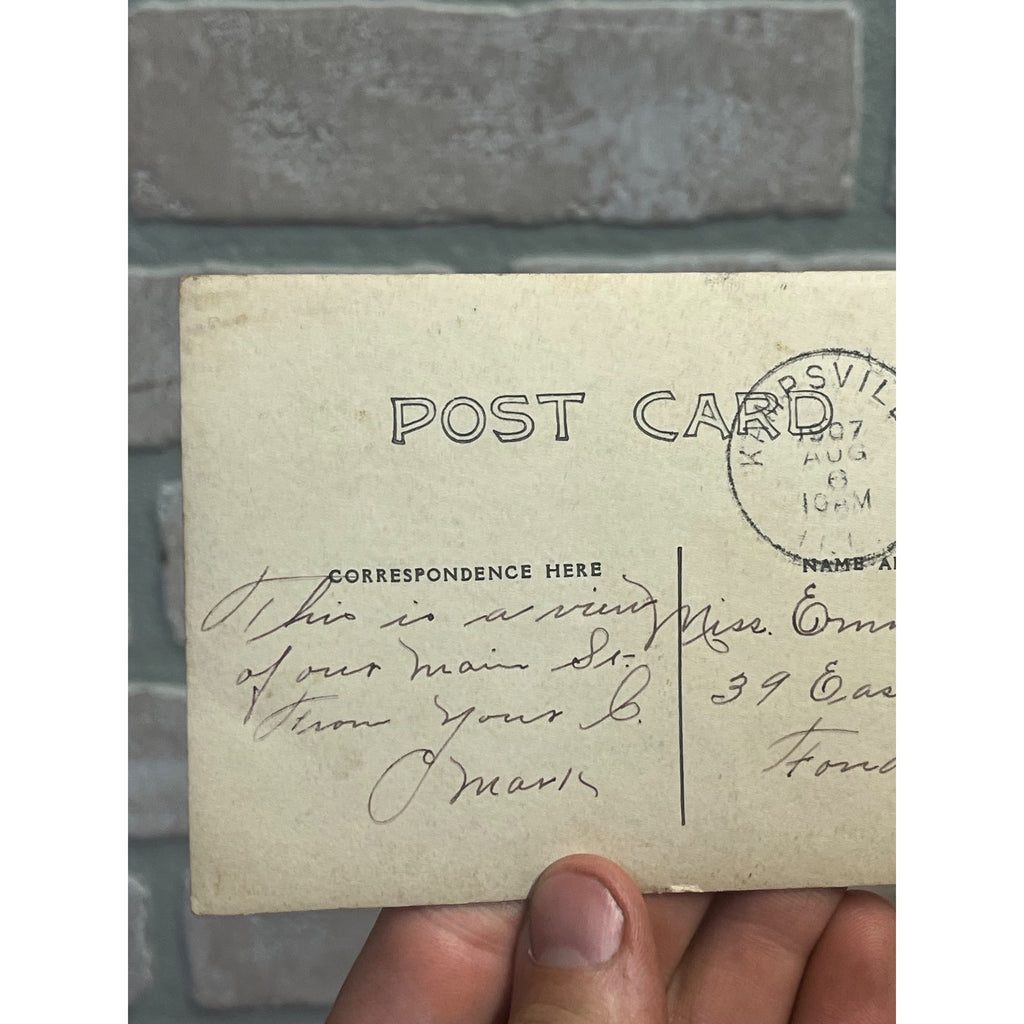 POST CARD
KAMPSVILL
1907
AUG
6
10AM
ILL.
CORRESPONDENCE HERE
NAME A
This is a view
of our Main St.
From Your C.
Mark
Miss.
39 Eas
Fond